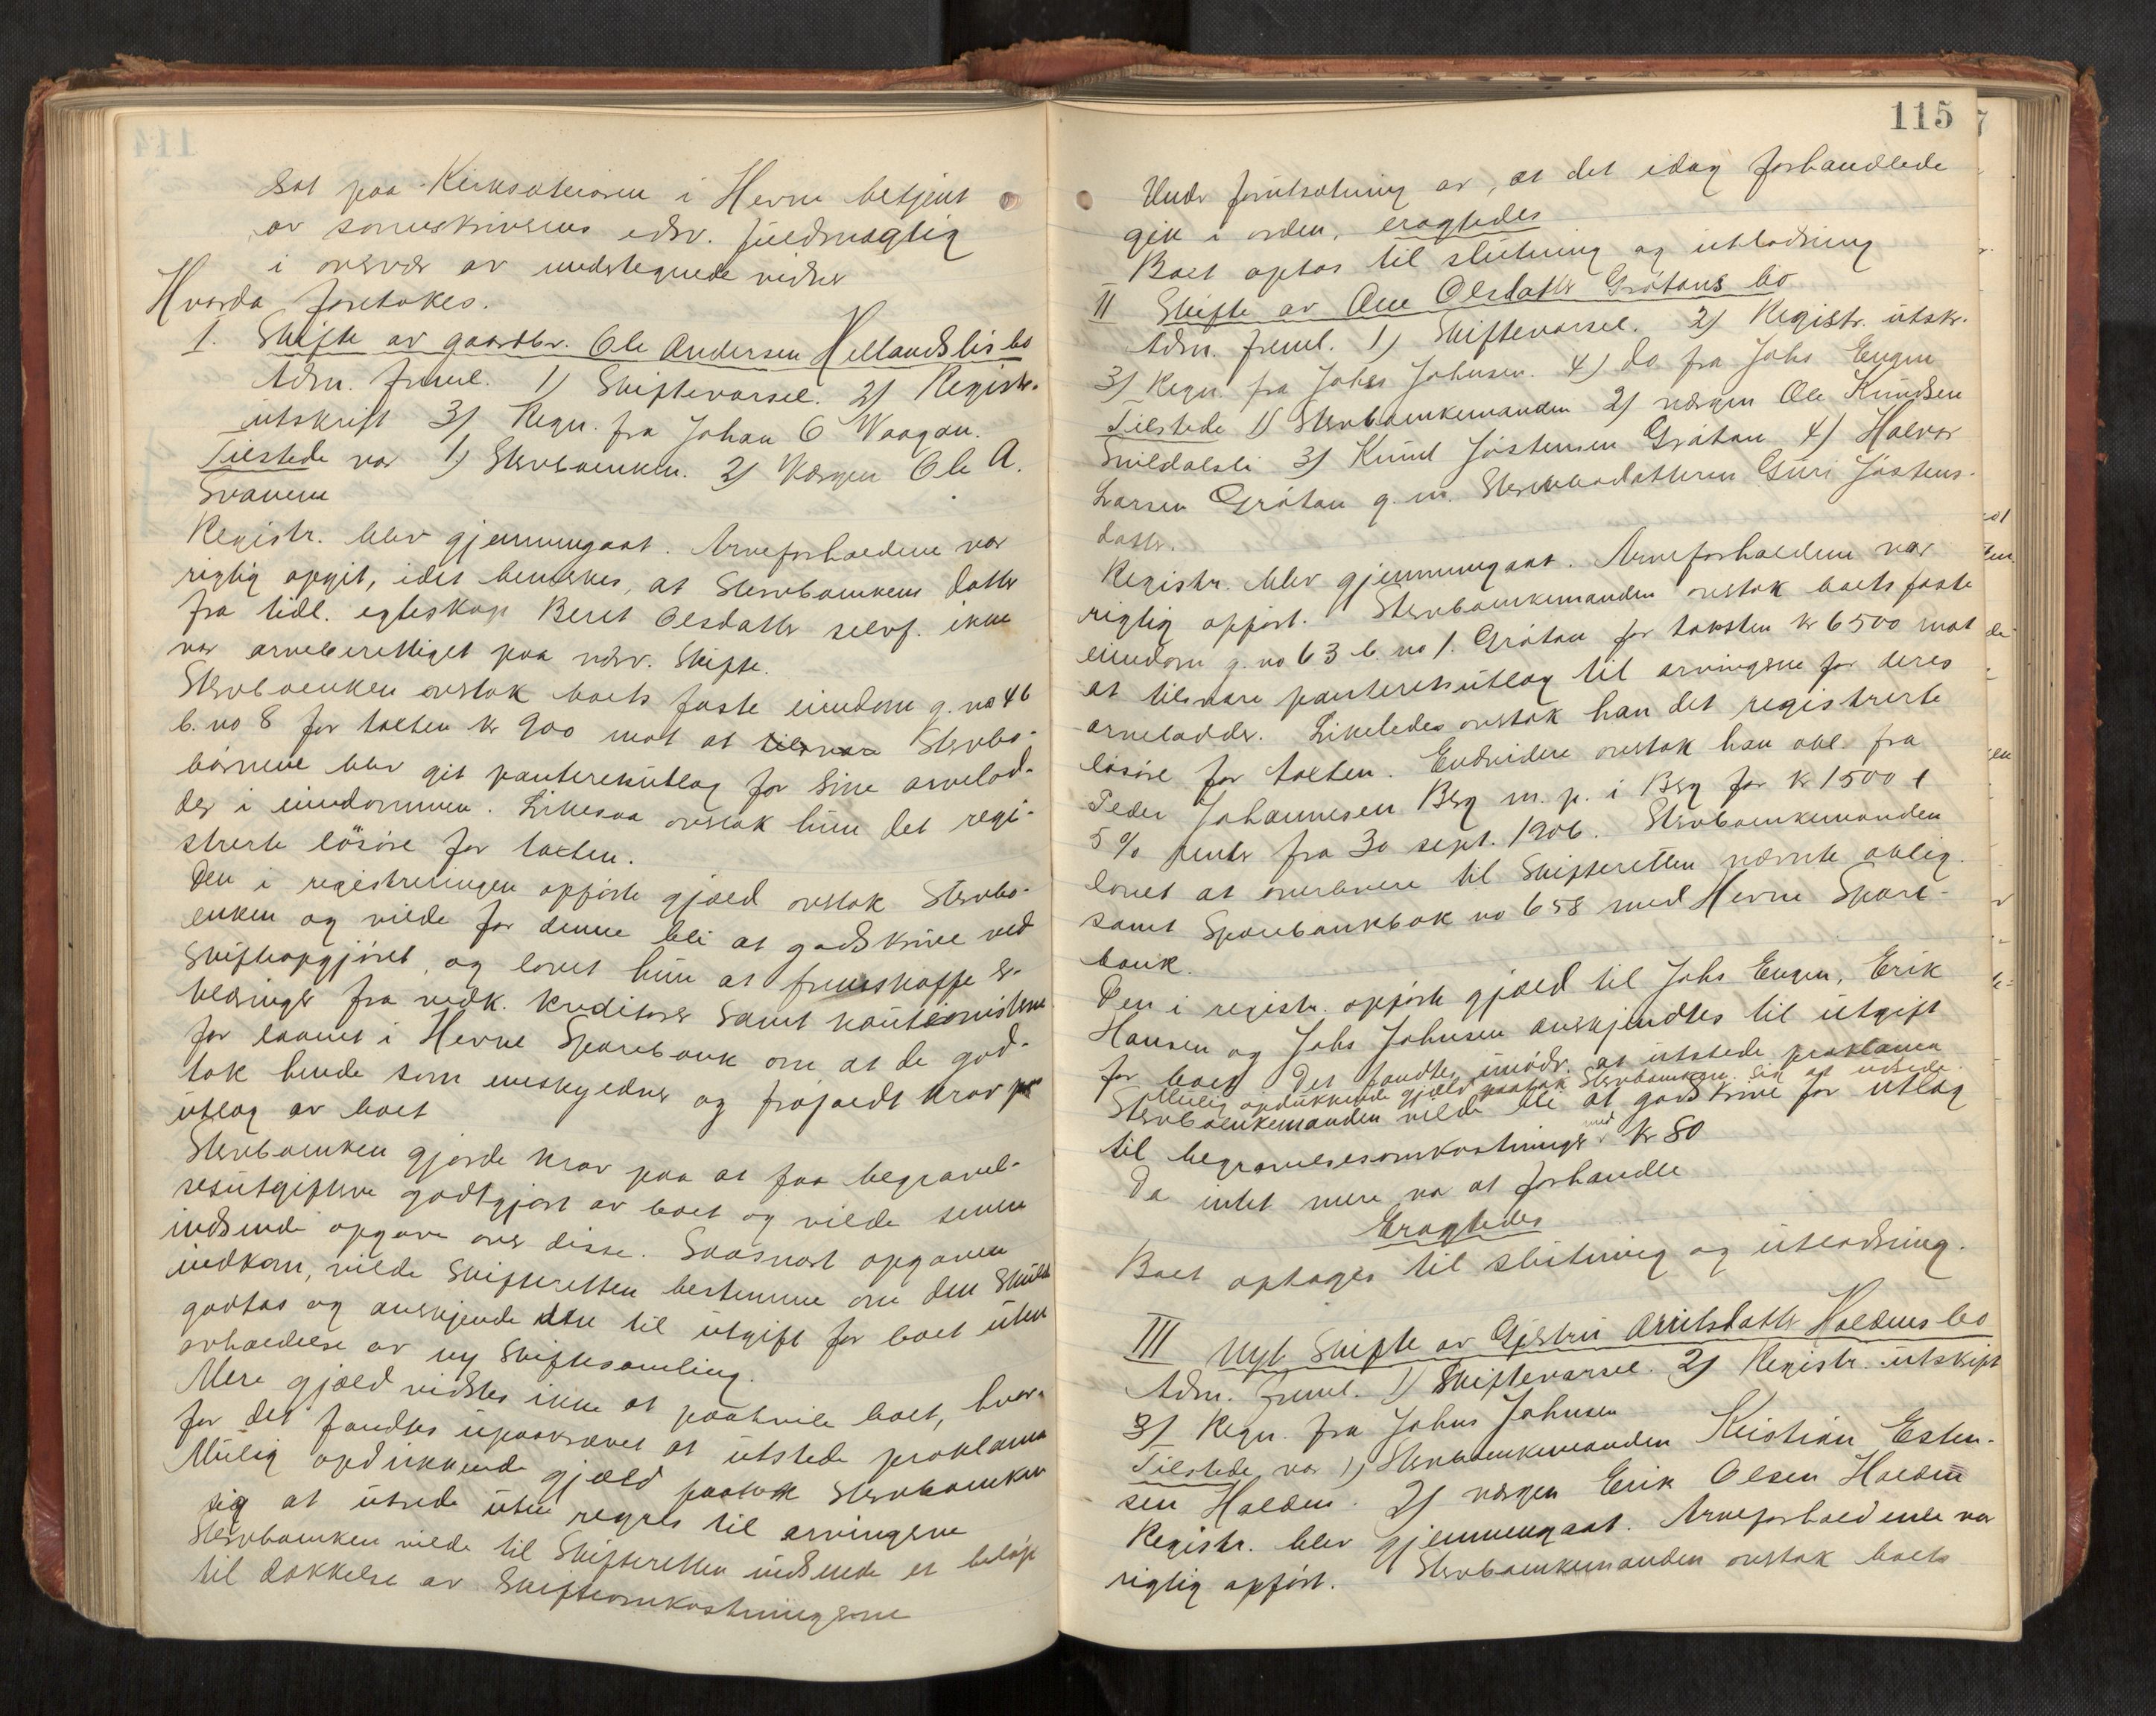 sat paa Kirksæterøren i Hevne betjent
av sorenskriverens edsv. fuldmægtig
i overvær av undertegnede vidner
Hvorda foretokes.
I. Skifte av gaardbr. Ole Andersen Hellandslis bo
Adm. freml. 1) Skiftevarsel. 2) Registr.
utskrift 3) Regn. fra Johan O Waagan.
Tilstede var 1) Stervboenken. 2) Værgen Ole A.
Svanem
Registr. blev gjennemgaat. Arveforholdene var
rigtig opgit, idet bemerkes, at Stervboenkens datter
fra tidl. egteskap Beret Olsdatter selvf. ikke
var arveberettiget paa nærv. Skifte.
Stervboenken overtok boets faste eiendom g. no 46
b. no 8 for taksten kr 900 mot at Stervbo-
børnene blev git panteretsutlæg for sine arvelod-
der i eiendommen. Likesaa overtok hun det regi-
strerte løsøre for taksten.
Den i registreringen opførte gjæld overtok Stervbo-
enken og vilde for denne bli at godskrive ved
Skifteopgjøret, og lovet hun at fremskaffe er-
klæringer fra vedk. kreditorer samt kautionisterne
for laanet i Hevne Sparebank om at de god-
tok hende som eneskyldner og frafaldt krav paa
utlæg av boet
Stervboenken gjorde krav paa at faa begravel-
sesutgifterne godtgjort av boet og vilde senere
indsende opgave over disse. Saasnart opgaven
indkom, vilde Skifteretten bestemme om den skulde
godtas og anerkjende den til utgift for boet uten
avholdelse av ny Skiftesamling.
Mere gjæld vidstes ikke at paahvile boet, hvor-
for det fandtes upaakrævet at utstede proklama
Mulig opdukkende gjæld paatok Stervboenken
sig at utrede uten regres til arvingerne
Stervboenken vilde til Skifteretten indsende et beløp
til dækkelse av Skifteomkostningerne
115
Under forutsætning av, at det idag forhandlede
gik i orden, eragtedes
Boet optas til slutning og utlodning
II Skifte av Ane Olsdatter Grøtans bo
Adm. freml. 1) Skiftevarsel. 2) Registr. utskr.
3) Regn. fra Johs Johnsen. 4) do fra Johs Engen
Tilstede 1) Stervboenkemanden 2) værgen Ole Knudsen
Snildalsli 3) Knut Jøstensen Grøtan 4) Halvor
Larsen Grøtan g. m. Stervbodatteren Guri Jøstens-
datter.
Registr. blev gjennemgaat. Arveforholdene var
rigtig opført. Stervboenkemanden overtok boets faste
eiendom g. no 63 b. no 1. Grøtan for taksten kr 6500 mot
at tilsvare panteretsutlæg til arvingerne for deres
arvelodder. Likeledes overtok han det registrerte
løsøre for taksten. Endvidere overtok han obl. fra
Peder Johannesen Berg m. p. i Berg for kr 1500 +
5 % renter fra 30 sept. 1906. Stervboenkemanden
lovet at overlevere til Skifteretten nævnte oblig.
samt Sparebankbok no 658 med Hevne Spare-
bank.
Den i registr. opførte gjæld til Johs Engen, Erik
Hansen og Johs Johnsen anerkjendtes til utgift
for boet. Det fandtes unødv. at utstede proklama
Mulig opdukkende gjæld paatok Stervboenkem. sig at utrede.
Stervboenkemanden vilde bli at godskrive for utlæg
til begravelsesomkostninger med kr 80
Da intet mere var at forhandle
Eragtedes
Boet optages til slutning og utlodning.
III Nyt Skifte av Gjertru Arntsdatter Haldens bo
Adm. freml. 1) Skiftevarsel. 2) Registr. utskrift
3) Regn. fra Johns Johnsen
Tilstede var 1) Stervboenkemanden Kristian Esten-
sen Halden. 2) værgen Erik Olsen Halden
Registr. blev gjennemgaat. Arveforholdene var
rigtig opført. Stervboenkemanden overtok boets